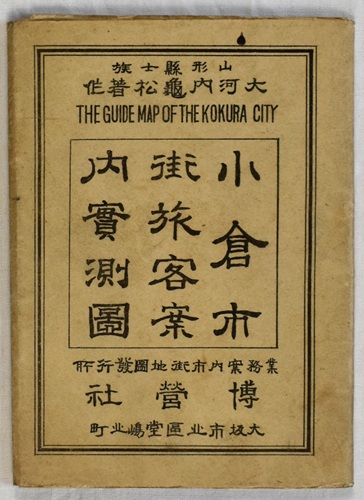 山形縣士族
大河内龜松著作
THE GUIDE MAP OF THE KOKURA CITY
小倉市
街旅客案
内實測圖
業務案内市街地圖發行所
博營社
大坂市北區堂嶋北町